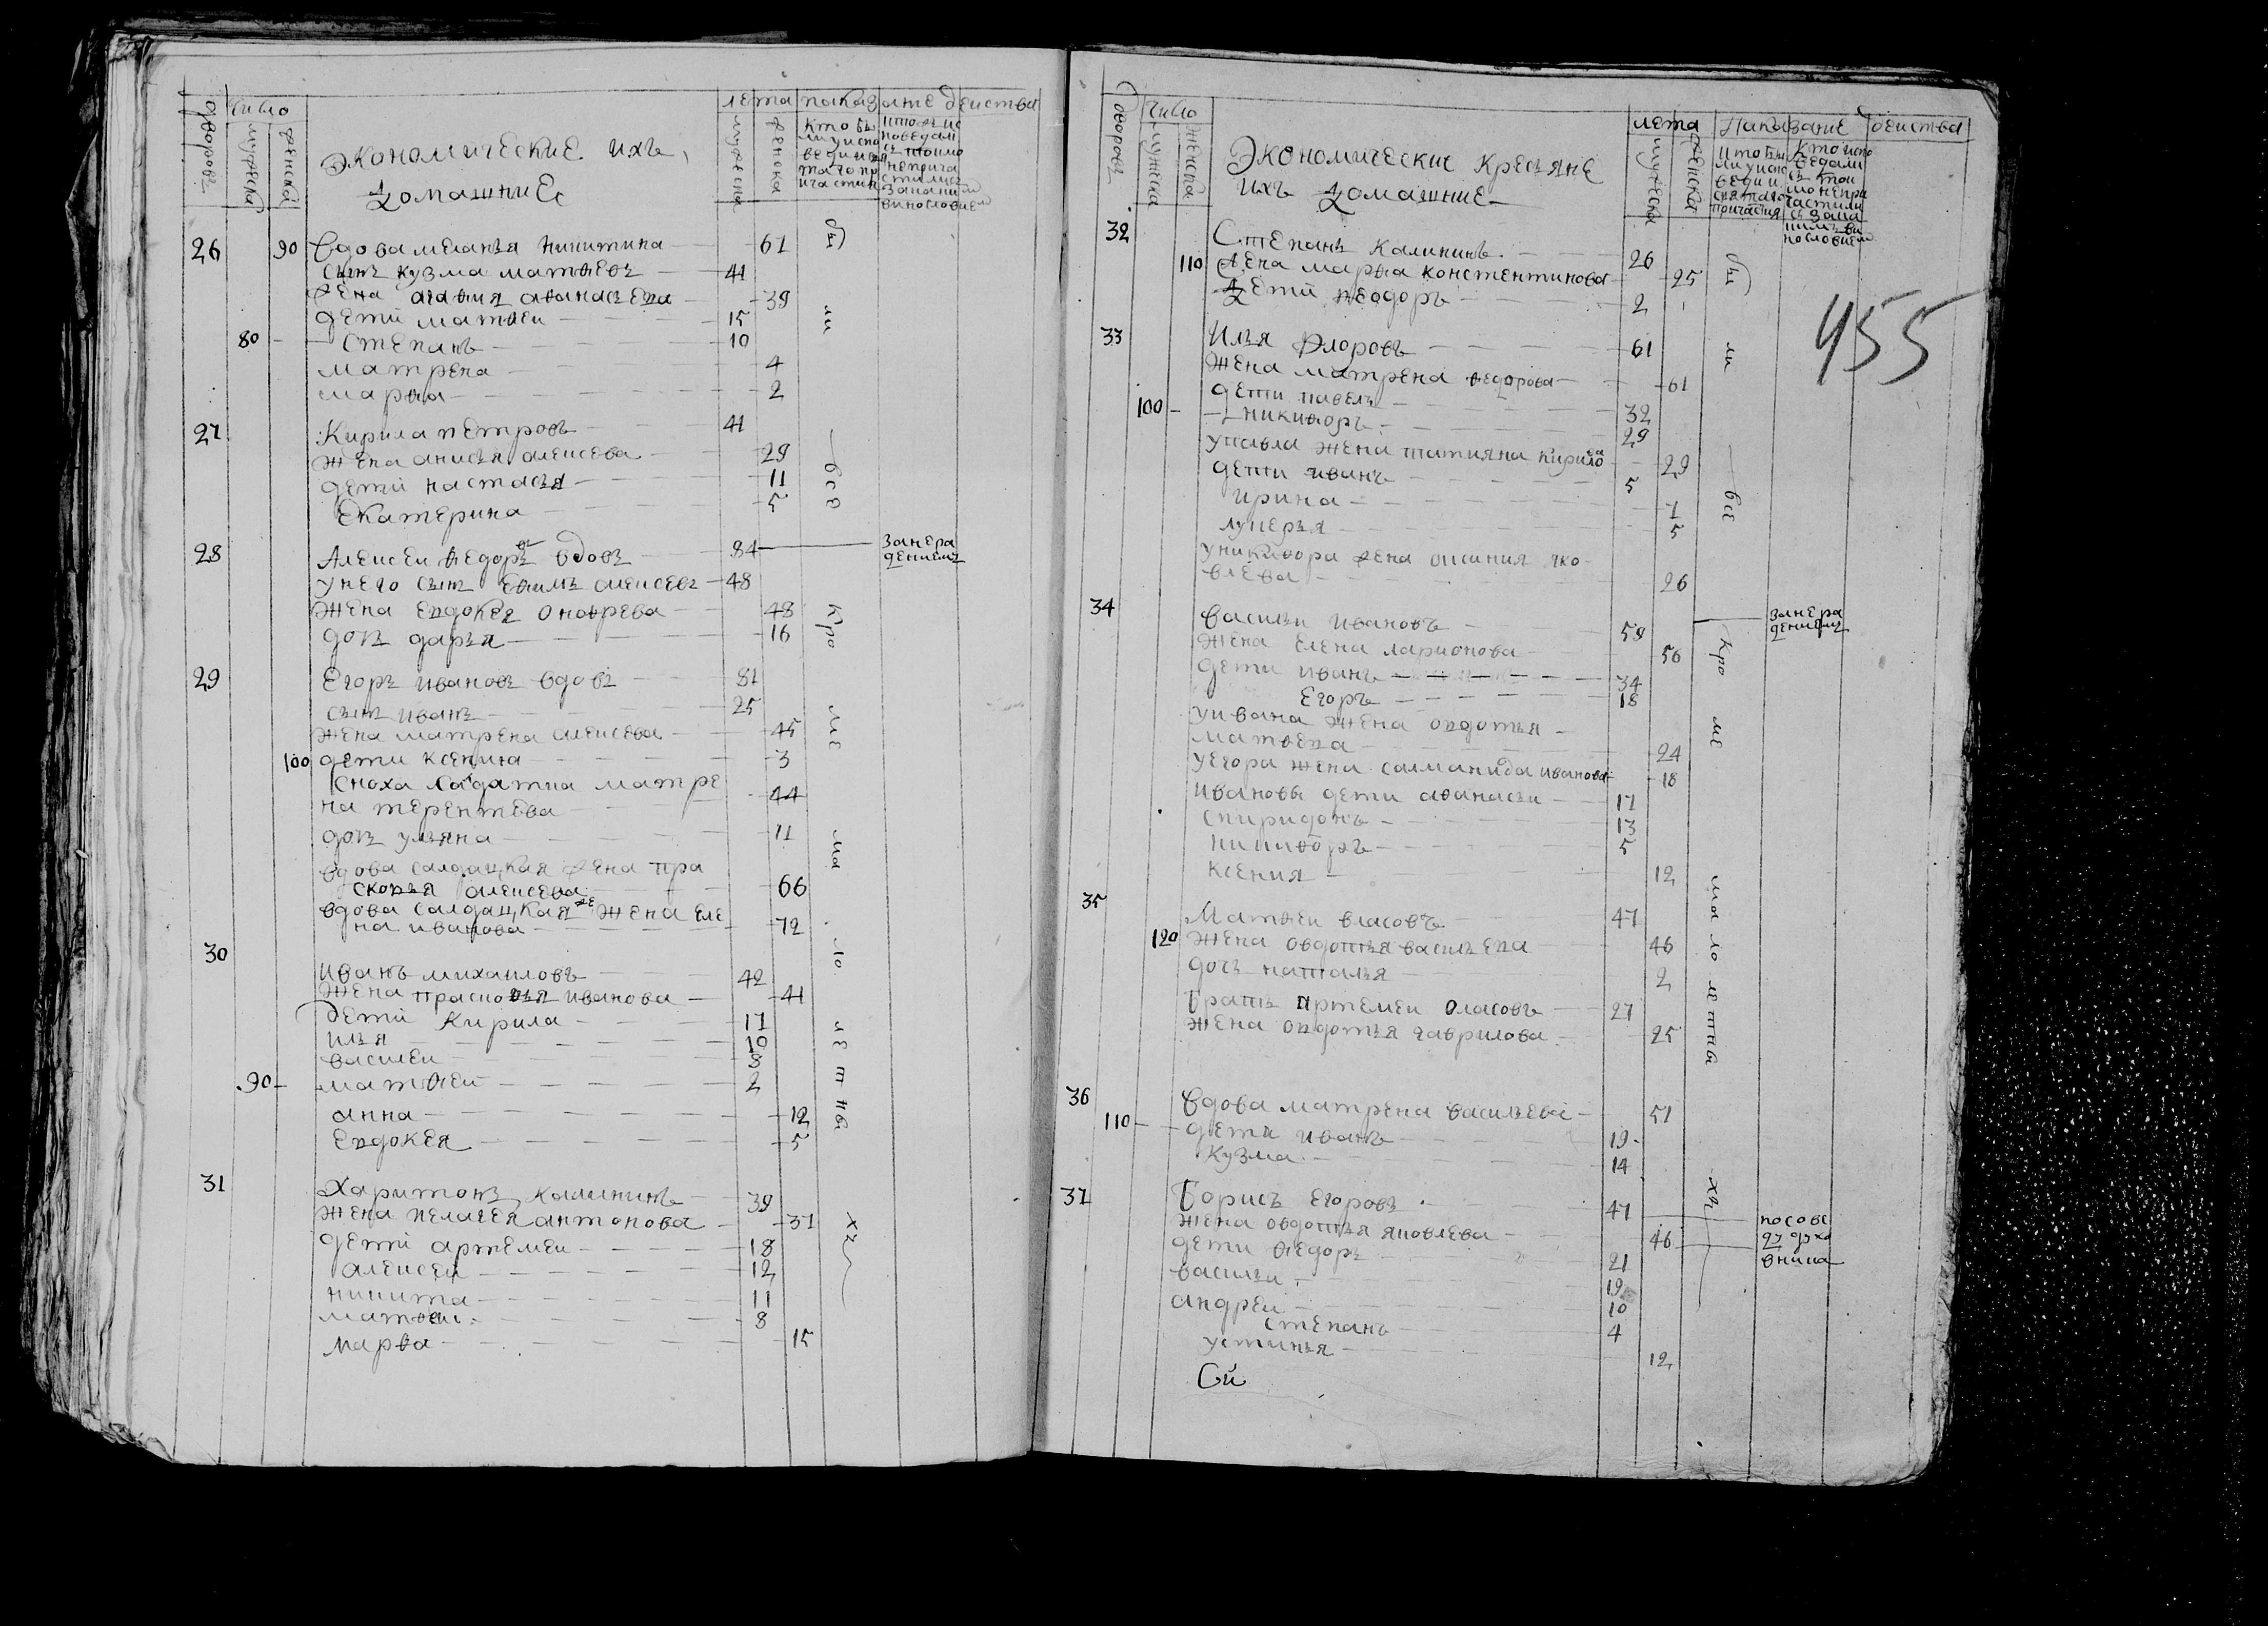 число лета показание действа
дворовъ мужеска женска Экономические ихъ домашние мужеска женска
кто были у исповеди и святаго причастия
кто исповедались токмо не причастились за каким винословием
26 90 Вдова меланья никитина 61
сынъ кузма матѳѣевъ 41
жена агаѳия аѳанасьева 39
дети матѳеи 15
80 степанъ 10
матрена 4
марѳа 2
27 Кирила петровъ 41
жена анисья алексеева 29
дети настасья 11
Екатерина 5
28 Алексеи ѳедоровъ вдовъ 84 за нерадениемъ
у него сынъ Еѳимъ алексеевъ 48
жена Евдокея оноѳрева 48
дочь дарья 16
29 Егоръ ивановъ вдовъ 81
сынъ иванъ 25
жена матрена алексеева 45
100 дети ксенина 3
сноха салдатка матре
на терентьева 44
дочь ульяна 11
вдова салдацкая жена пра
сковья алексеева 66
вдова салдацкая же жена еле
на иванова 72
30
иванъ михаиловъ 42
жена прасковья иванова 41
дети кирила 17
илья 10
василеи 8
90 матѳеи 2
анна 12
Евдокея 5
31 Харитонъ калининъ 39
жена пелагея антонова 37
дети артемеи 18
алексеи 12
никита 11
матѳеи 8
марѳа 15
были все кроме малолетныхъ
число лета Показание действа
дворовъ мужеска женска Экономические кресьяне
ихъ домашние мужеска женска
кто были у исповеди и святаго причастия
кто исповедались токмо не причастились за каким винословием
455
32 Степанъ калининъ 26
110 жена марѳа константинова 25
дети ѳеодоръ 2
33 Илья Флоровъ 61
жена матрена ѳедорова 61
дети павелъ 32
100 никиѳоръ 29
у павла жена татияна кирилова 29
дети иванъ 5
ирина 7
лукерья 5
у никиѳора жена аксиния яко
влева 26
34
василеи ивановъ 59 за нерадениемъ
жена елена ларионова 56
дети иванъ 34
Егоръ 18
у ивана жена овдотья
матвеева 24
у егора жена саламанида иванова 18
ивановы дети аѳанасеи 17
спиридонъ 13
никиѳоръ 5
ксения 12
35
Матѳеи власовъ 47
120 жена овдотья васильева 46
дочь наталья 2
братъ артемеи власовъ 27
жена овдотья гаврилова 25
36
вдова матрена васильева 51
110 дети иванъ 19
кузма 14
37 Борисъ Егоровъ 47 по сове
жена овдотья яковлева 46 ту духо
дети ѳедоръ 21 вника
василеи 19
андреи 10
степанъ 4
устинья 12
были все кроме малолетныхъ
Сй